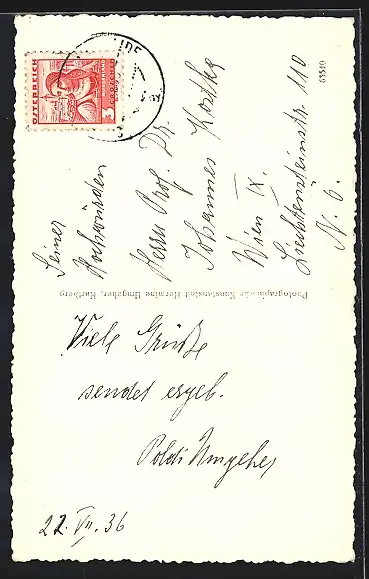 ÖSTERREICH
3
GROSCHEN
Seiner
Hochwürden
Herrn Prof. Dr.
Johannes Kostka
Wien IX.
Liechtensteinstr. 110
N. 6.
63510
Photographische Kunstanstalt Hermine Umgeher, Hartberg
Viele Grüße
sendet ergeb.
Poldi Umgeher
22. VII. 36